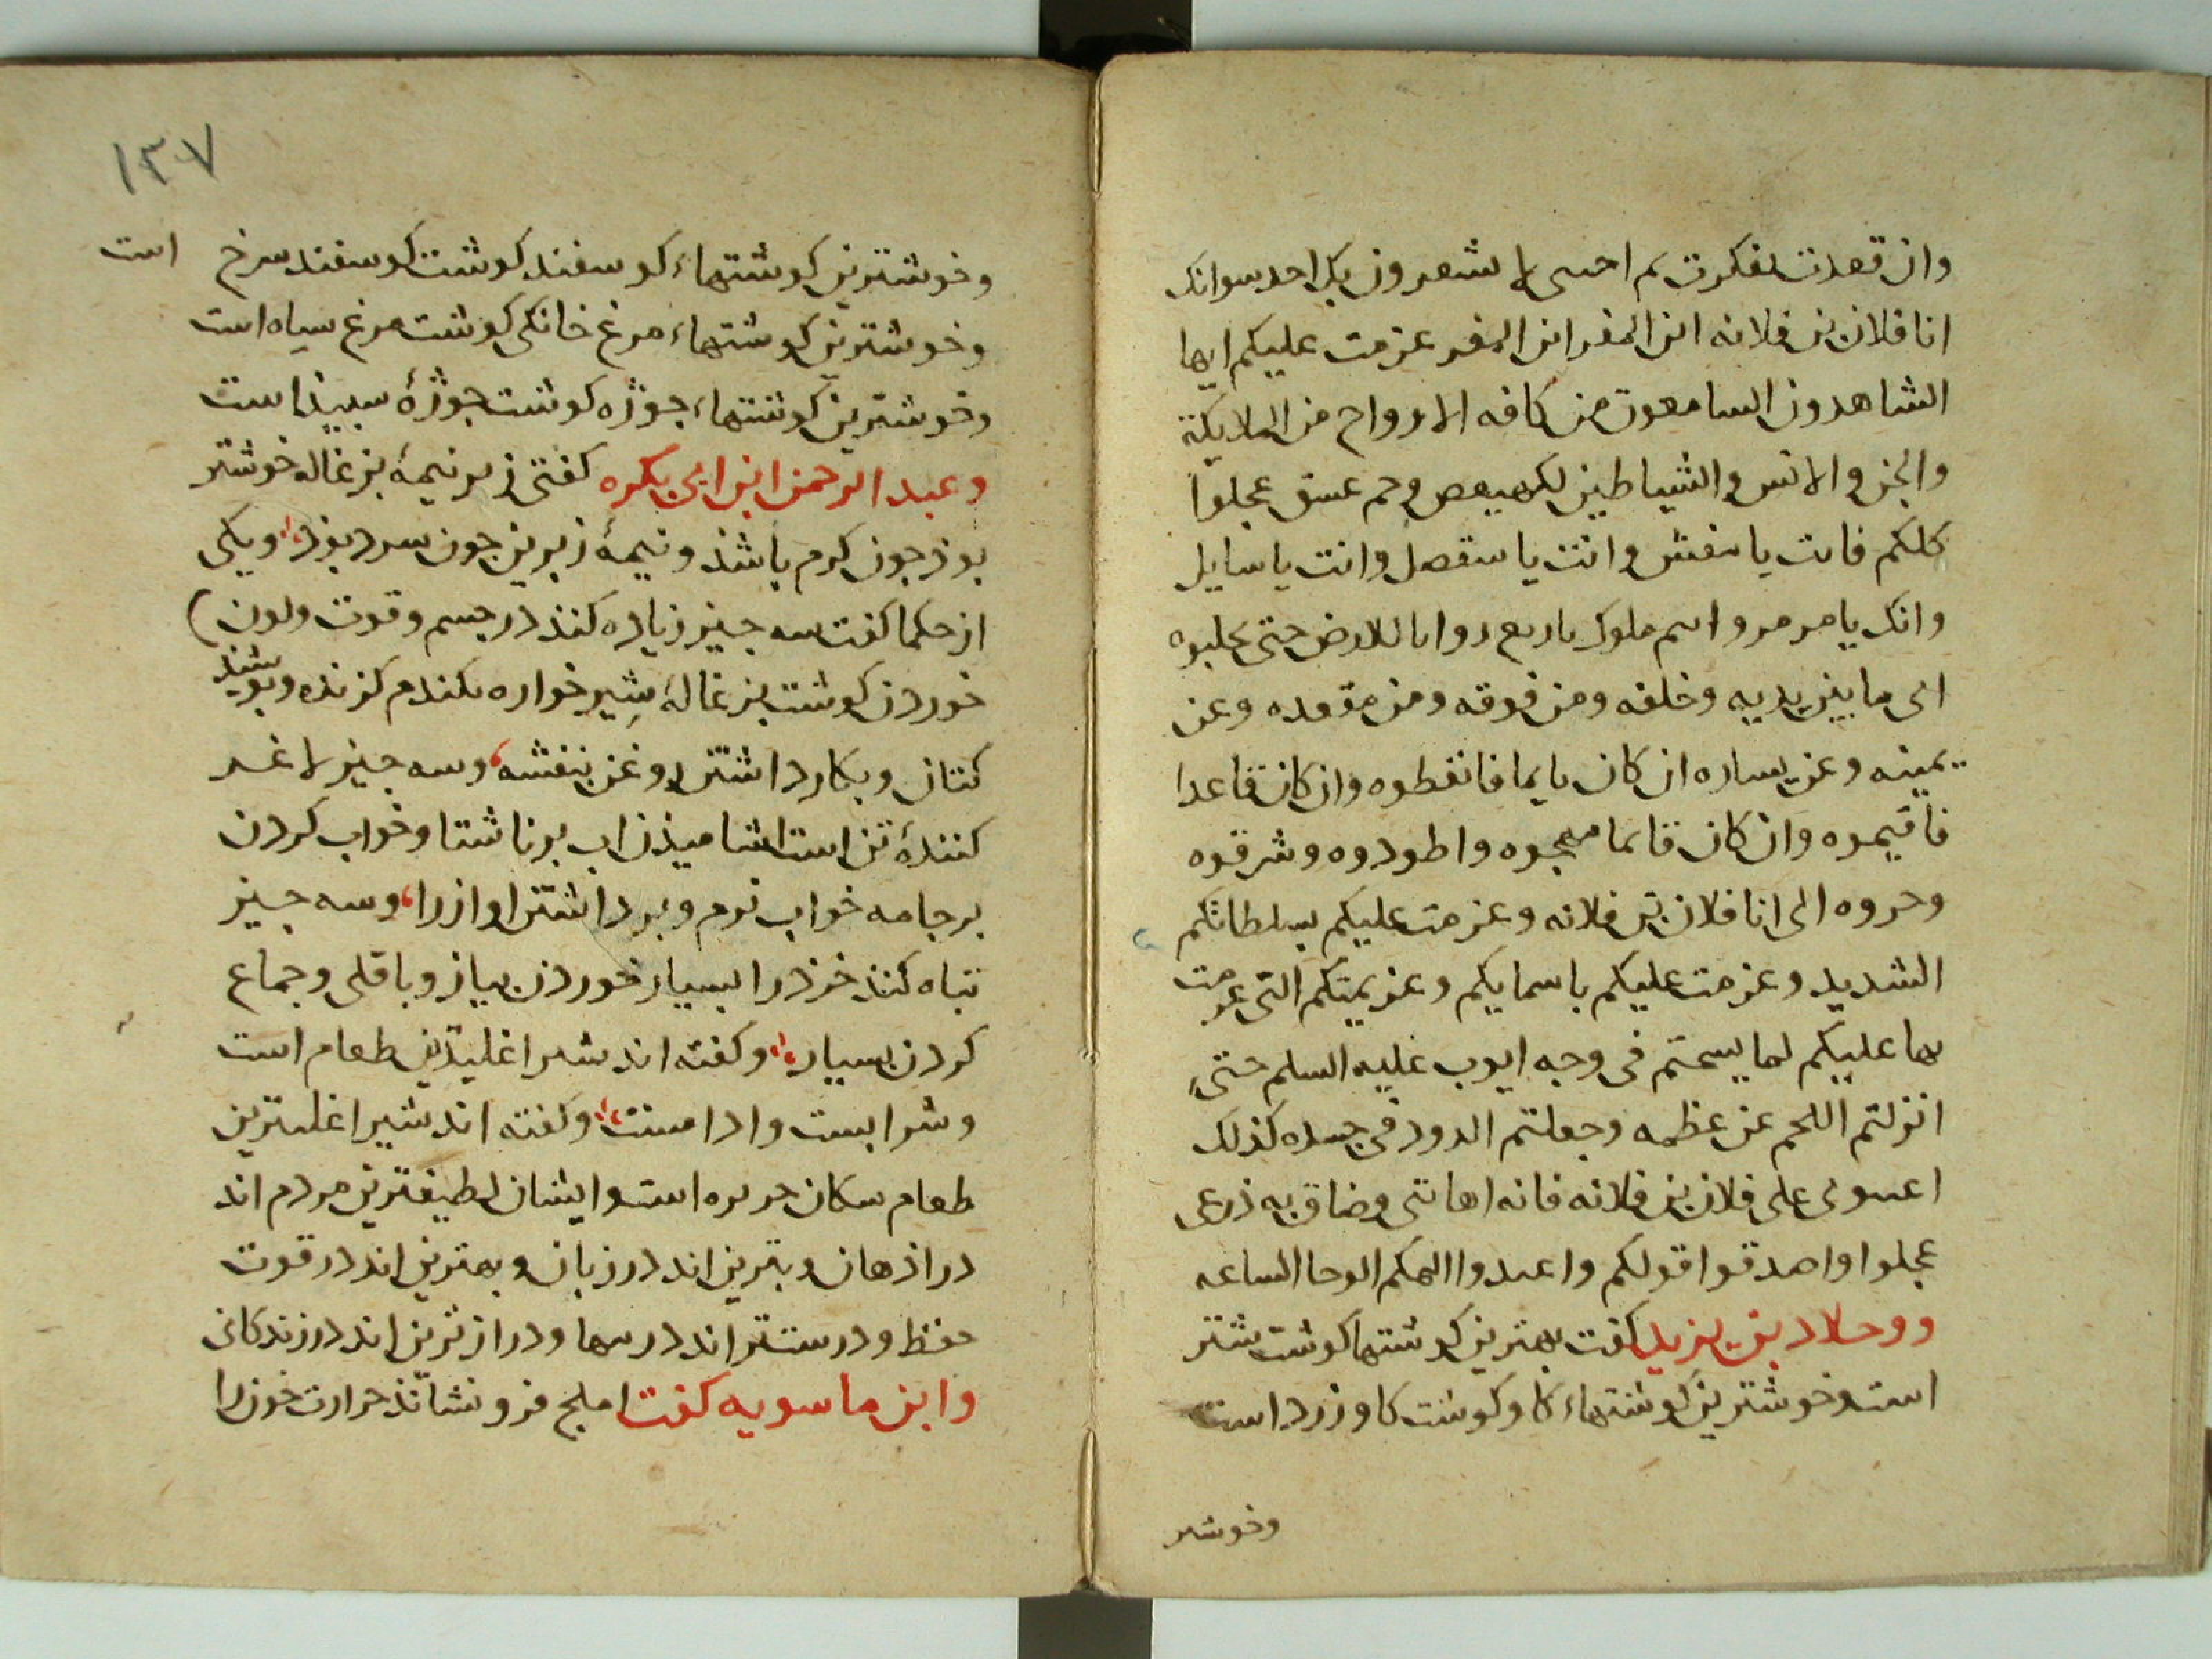 وان قعدت تفكرت ثم احسى لا شعرون بك احد سوانك
انا فلان بن فلانه اين المفر اين المفر عزمت عليكم ايها
الشاهدون السامعون من كافه الارواح من الملايكة
والجن والانس والشياطين بكهيعص وحم عسق عجلوا
كلكم فانت يا وانت يا وانت يا سايل
وانك يا مرمر وانتم ملوك باربع زوايا الارض حتى تجلبوه
الى ما بين يديه وخلفه ومن فوقه ومن مقعده وعن
يمينه وعن يساره ان كان نايما فانقطوه وان كان قاعدا
فاقيموه وان كان قائما واطردوه وشرقوه
وحروه الى انا فلان بن فلانه وعزمت عليكم بسلطانكم
الشديد وعزمت عليكم باسمايكم وعزيمتكم التى عزمت
بها عليكم لما يسمتم فى وجه ايوب عليه السلم حتى
انزلتم اللحم عن عظمه وجعلتم الدود فى جسده كذلك
على فلان بن فلانه فانه اهاننى وضاق به ذرعى
عجلوا واصدقوا قولكم واعبدوا الهكم الوحا الساعه
بن يزيد كفت بهترين كوشتها كوشت شتر
است وخوشترين كوشتهاء كاو كوشت كاو زرد است
وخوشتر
١٣٧
وخوشترين كوشتهاء كوسفند كوشت كوسفند سرخ است
وخوشترين كوشتهاء مرغ خانكى كوشت مرغ سياه است
وخوشترين كوشتهاء جوژه كوشت جوژهٔ سبيد است
وعبد الرحمن ابن ابى بكره كفتى زبر نيمهٔ بزغاله خوشتر
بوذ جون كرم باشذ ونيمهٔ زيرين جون سرد بوذ ويكى
از حكما كفت سه جيز زياده كنند در جسم وقوت ولون
خوردن كوشت بزغالهٔ شير خواره بكندم كزنده وپوشيذ
كتان وبكار داشتن روغن بنفشه وسه جيز لاغر
كنندهٔ تن است اشاميذن اب بر ناشتا وخواب كردن
بر جامه خواب نرم وبر داشتن اواز را وسه جيز
تباه كنند خرد را بسيار خوردن پياز وباقلى وجماع
كردن بسيار وكفته اند شير اغليترين طعام است
وشرابست وادامست وكفته اند شير اغليترين
طعام سكان جزيره است وايشان لطيفترين مردم اند
در اذهان وبترين اند در زبان وبهترين اند در قوت
حفظ ودرستتر اند در سها ودرازترين اند در زندكانى
وابن ماسويه كفت املج فرو نشاند حرارت خون را